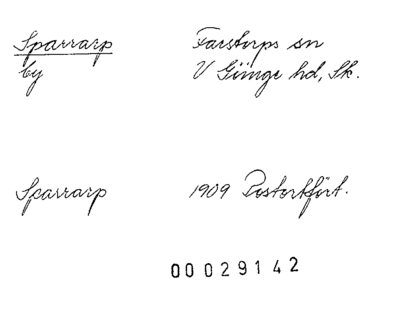 Sparrarp Farstorps sn
by V Göinge hd, Sk.
Sparrarp 1909 Postortfört.
00029142